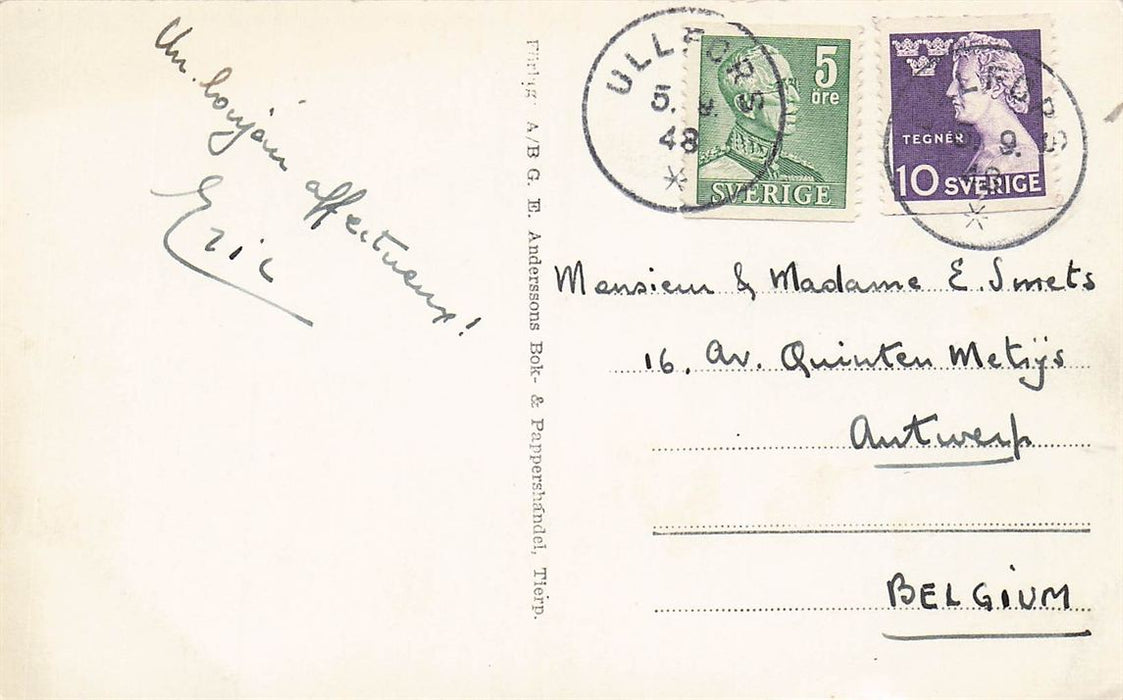 Un bonjour
affectueux!
Eric
Förlag: A/B G. E. Anderssons Bok- & Pappershandel, Tierp.
ULLFORS
5. 9.
48
5 öre
SVERIGE
ULLFORS
5. 9.
48
TEGNÉR
10 SVERIGE
Monsieur & Madame E. Smets
16, Av. Quinten Metsijs
Antwerp
BELGIUM